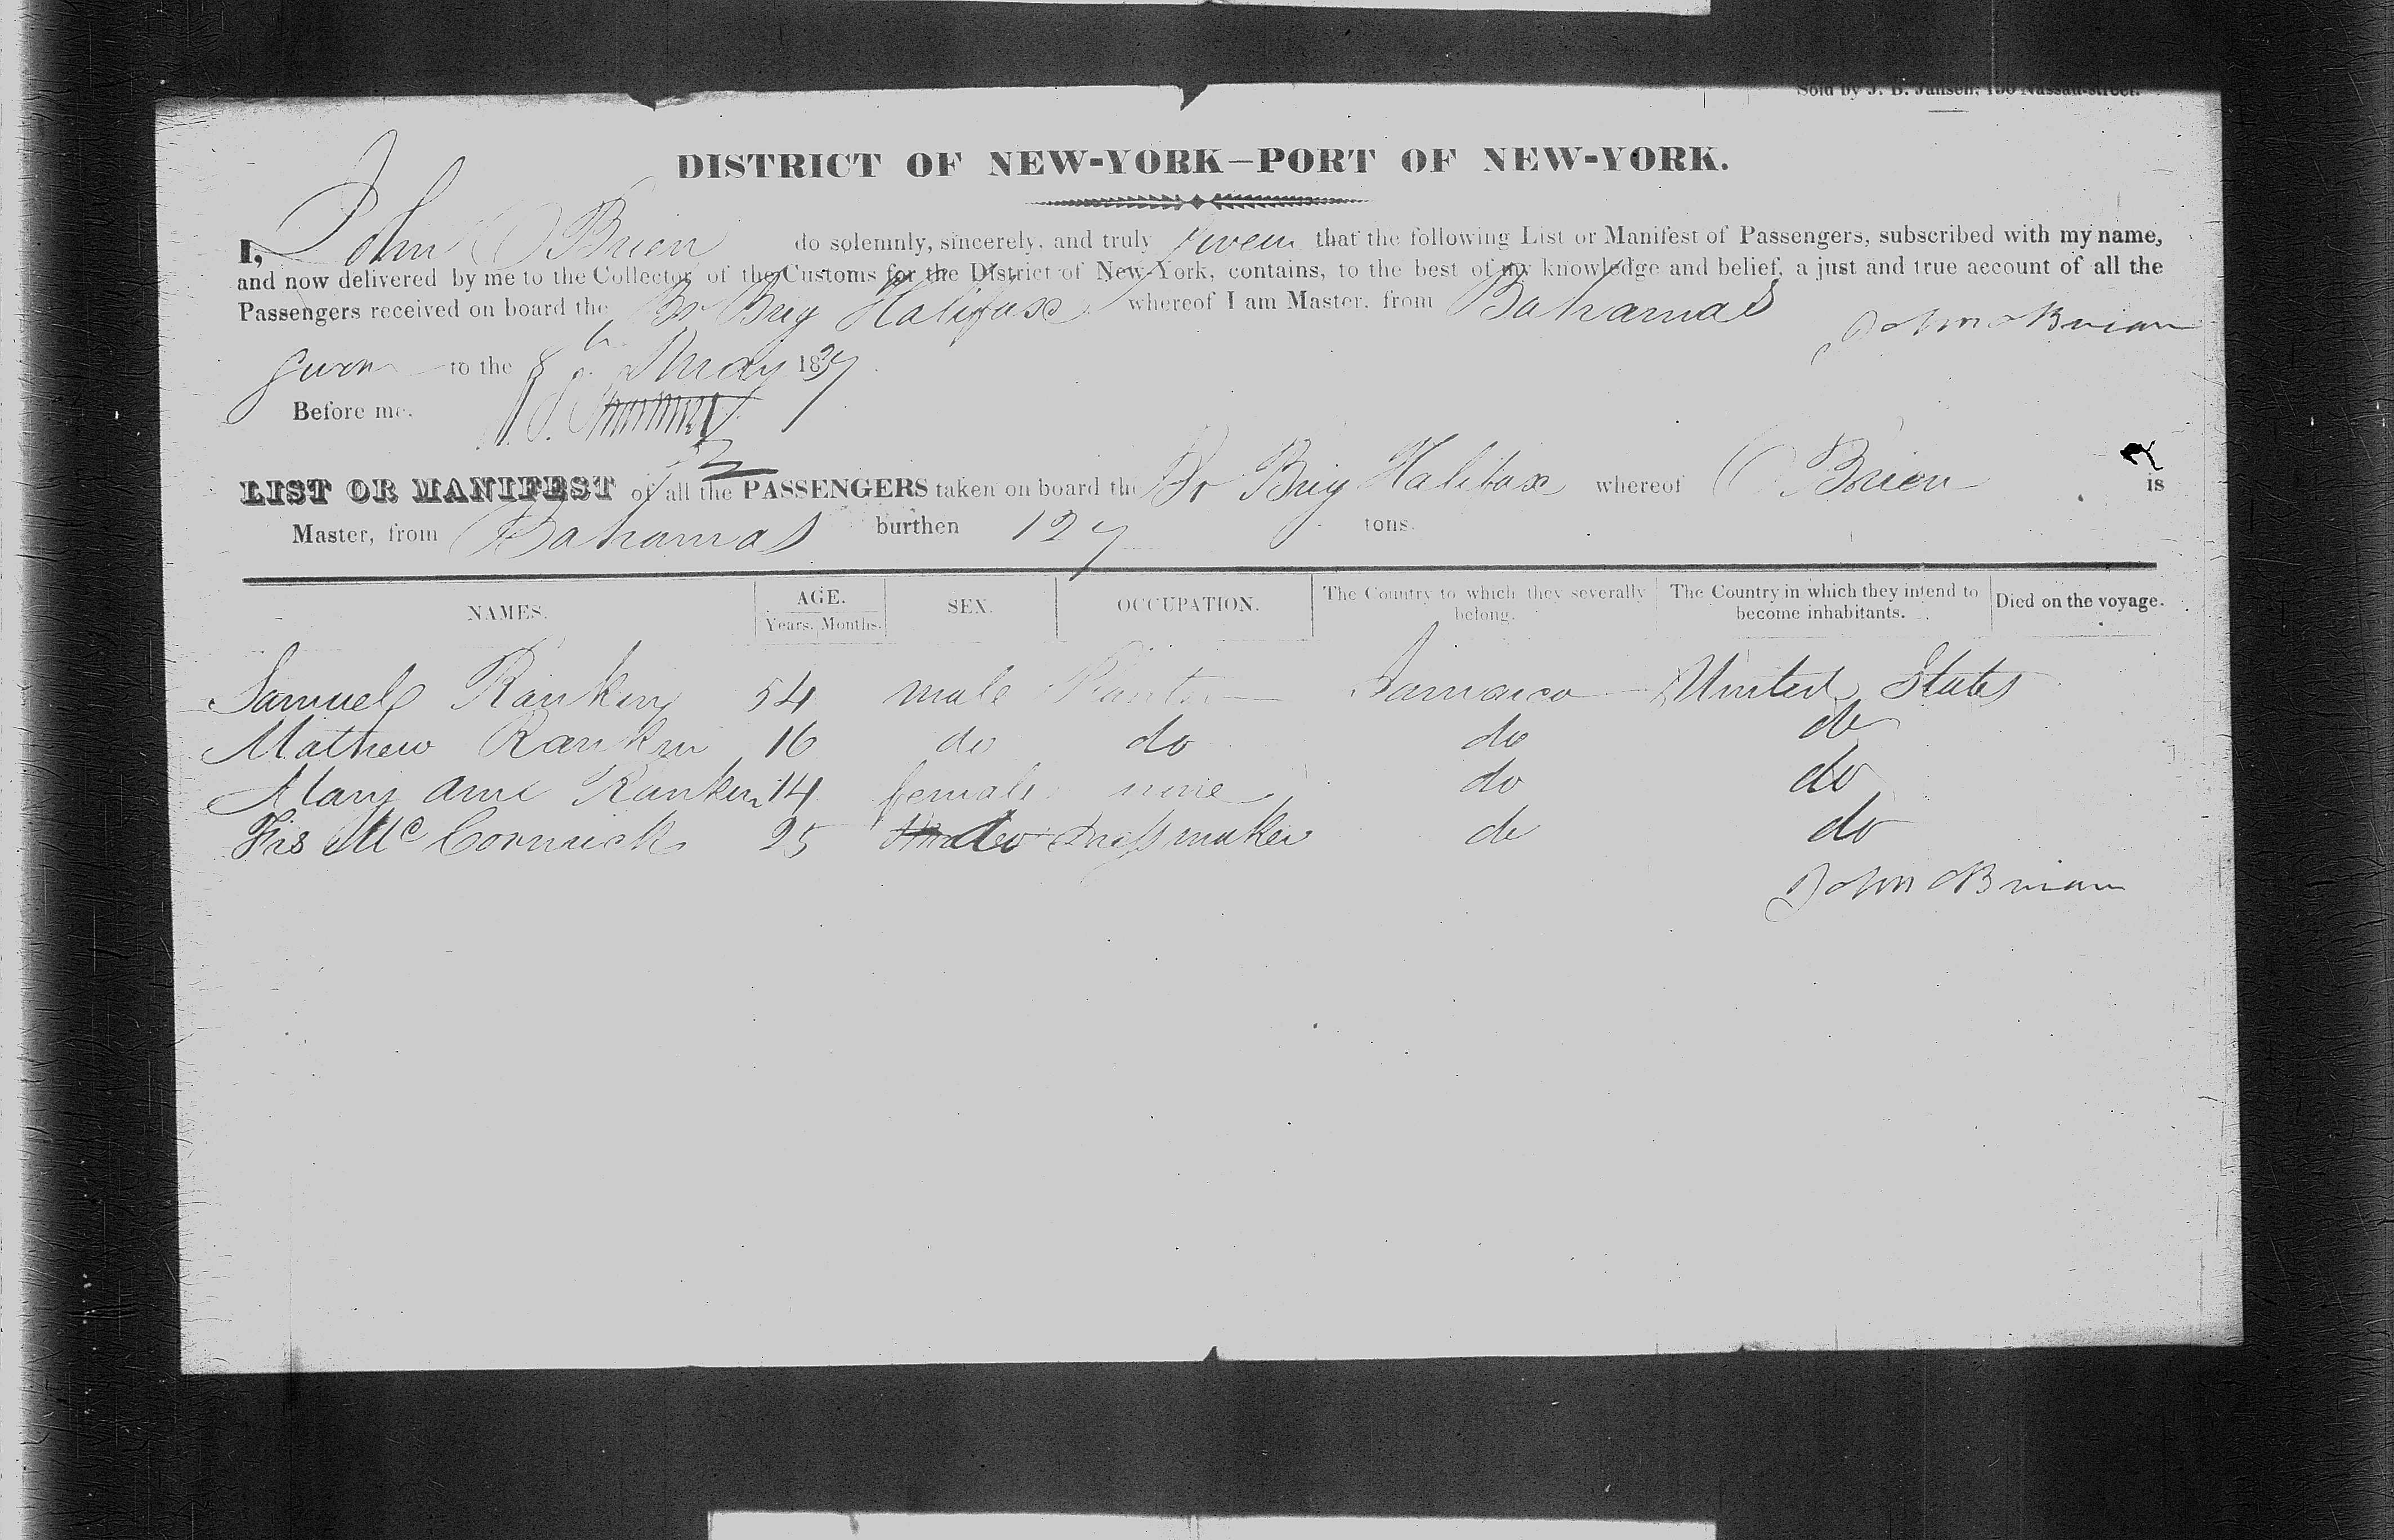 Sold by J. B. Jansen, 158 Nassau-street.
DISTRICT OF NEW-YORK—PORT OF NEW-YORK.
I, John O Brien do solemnly, sincerely, and truly swear that the following List or Manifest of Passengers, subscribed with my name,
and now delivered by me to the Collector of the Customs for the District of New-York, contains, to the best of my knowledge and belief, a just and true account of all the
Passengers received on board the Br Brig Halifax whereof I am Master, from Bahamas
John OBrian
Sworn to the 8th May 1837
Before me.
LIST OR MANIFEST of all the PASSENGERS taken on board the Br Brig Halifax whereof O Brien is
Master, from Bahamas burthen 127 tons.
NAMES. AGE. SEX. OCCUPATION. The Country to which they severally belong. The Country in which they intend to become inhabitants. Died on the voyage.
Years. Months.
Samuel Rankin 54 male Planter Jamaica United States
Mathew Rankin 16 do do do do
Mary Ann Rankin 14 female none do do
Frs McCormick 25 do Dressmaker do do
John OBrian